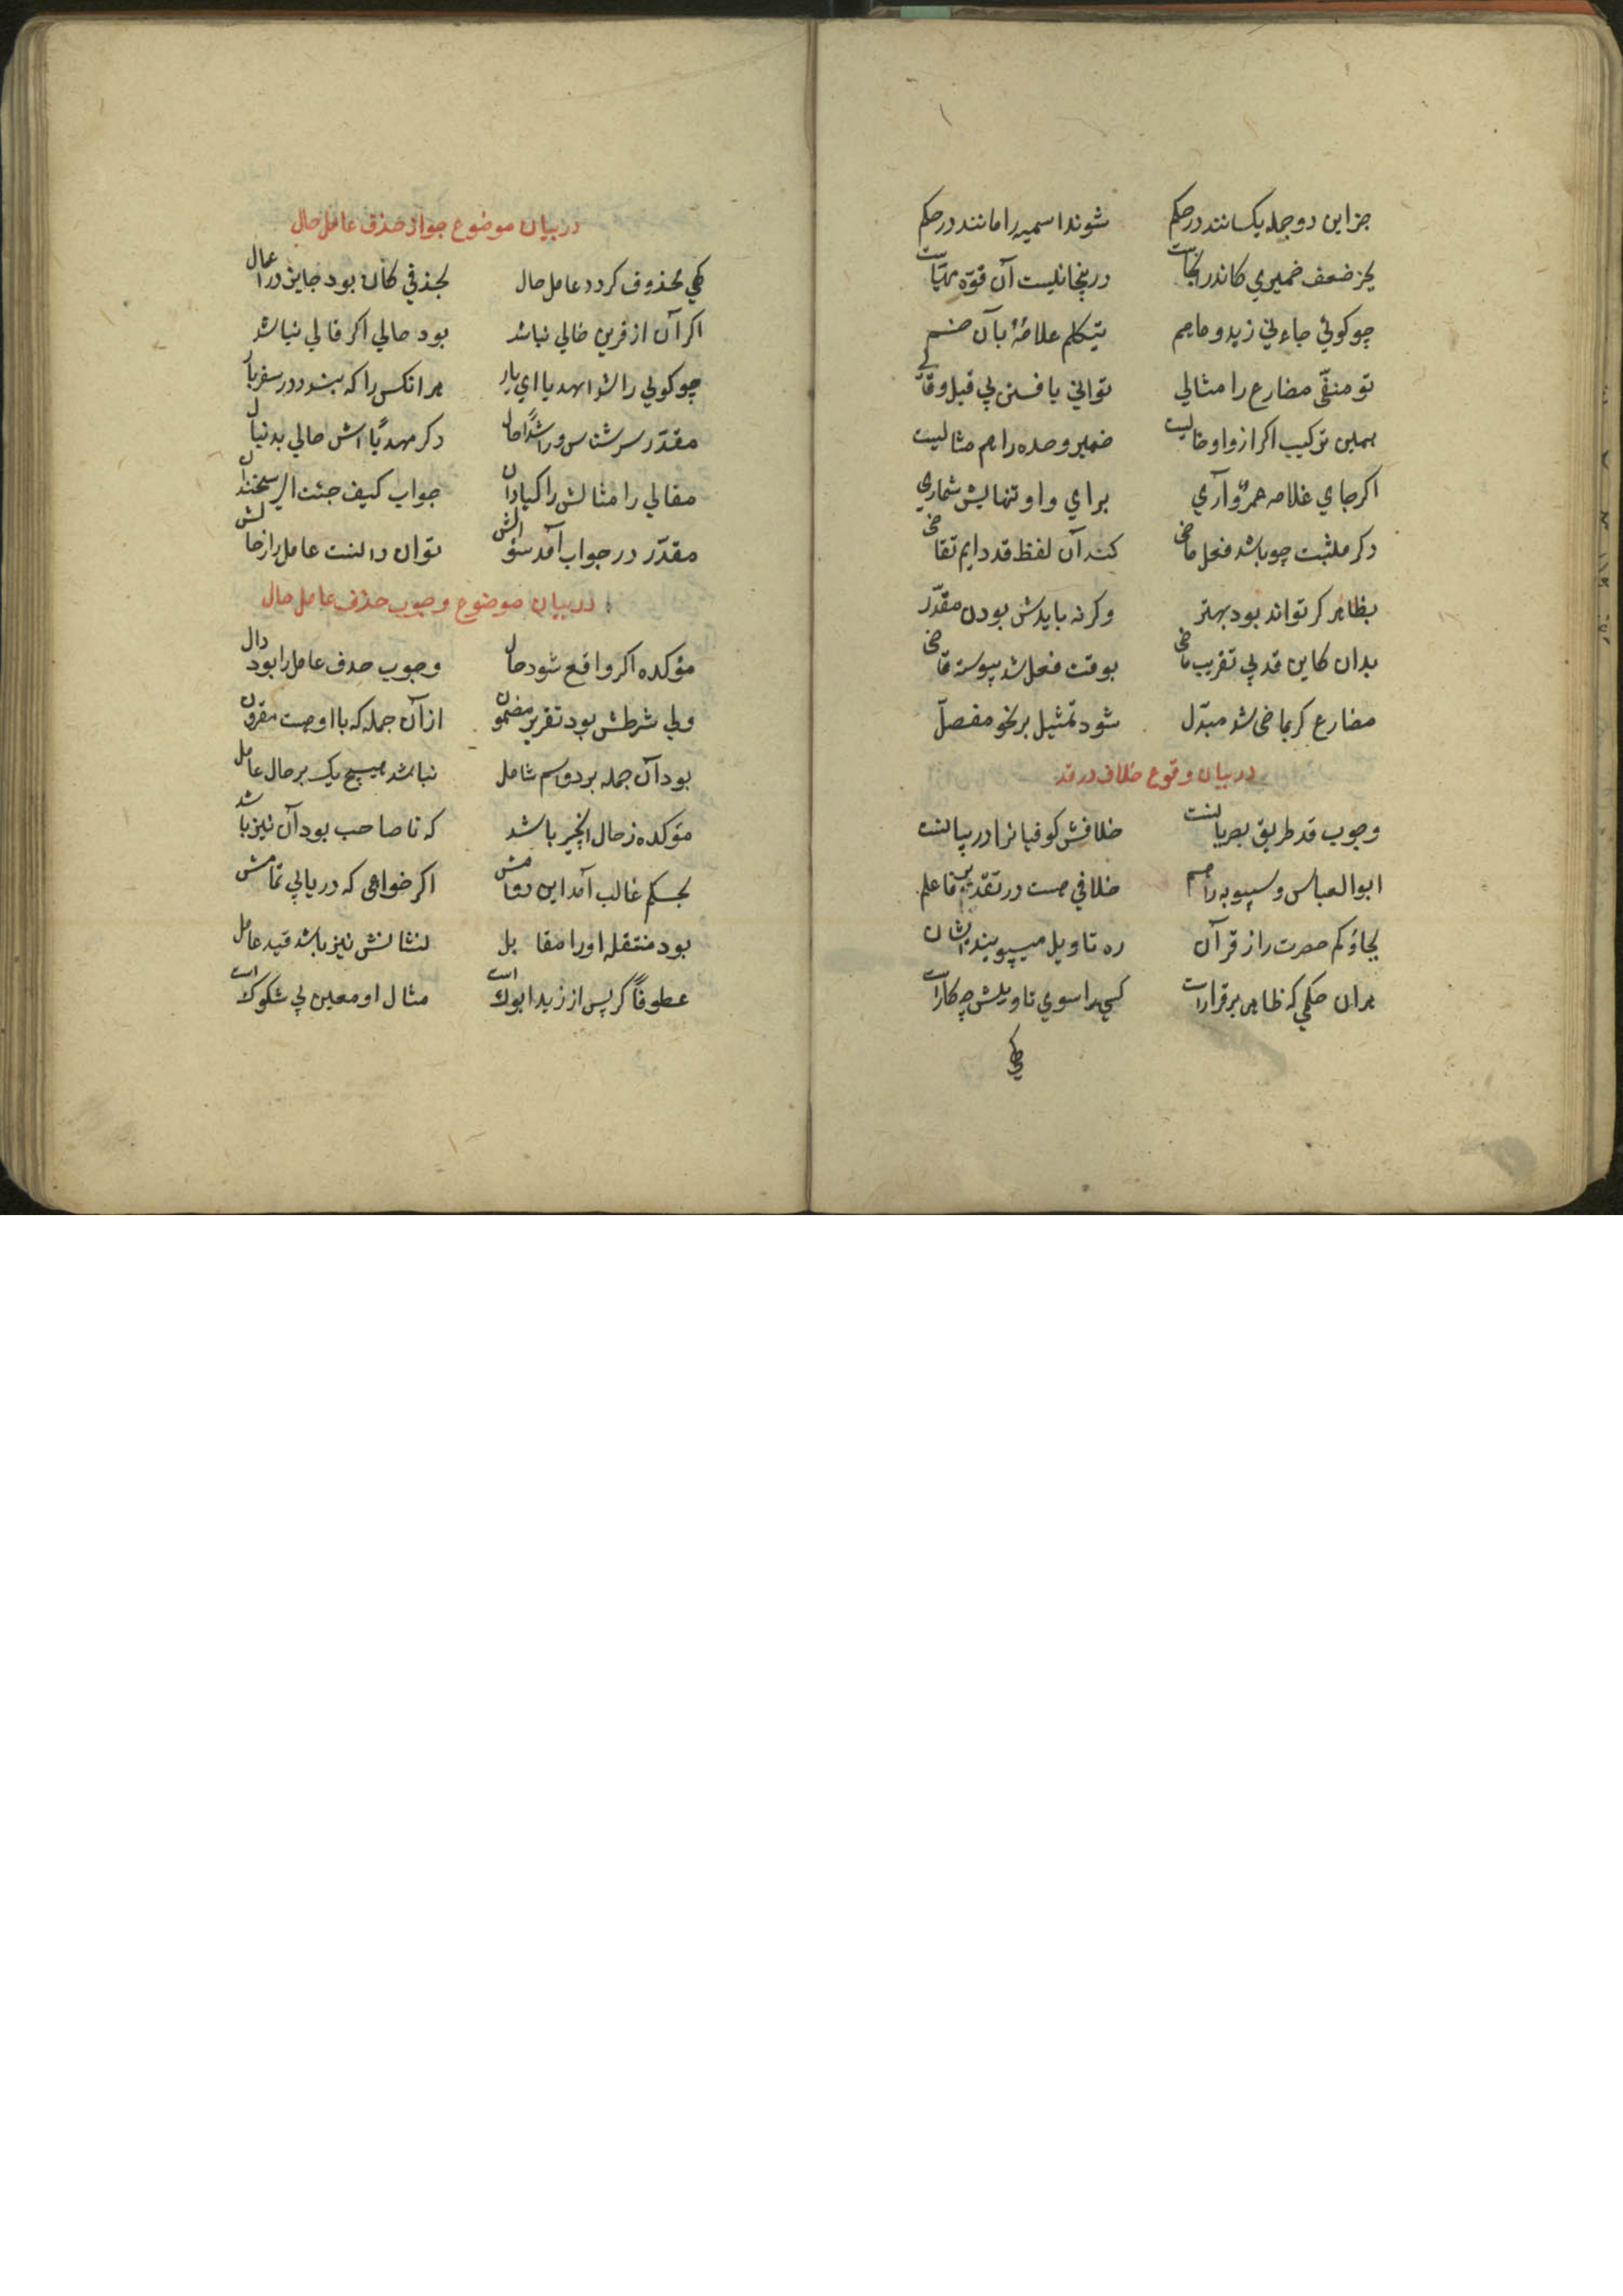 جز این دو جمله یکسانند در حکم شوند اسمیه را مانند در حکم
بجز ضعف ضمیری کاندر آنجاست درینجا نیست آن قوة مهیاست
چو کوئی جاءنی زید و ماهم یتکلم غلامهٔ بآن ضم
تو منفی مضارع را مثالی توانی یافتن بی قیل و قالی
بهمین ترکیب اکر از واو خالیست ضمیر وحده را هم مثالیست
اکر جای غلامه عمرٌو آری برای واو تنهایش شماری
دکر مثبت چو باشد فعل ماضی کند آن لفظ قد دایم تقاضی
بظاهر کر تواند بود بهتر وکرنه بایدش بودن مقدّر
بدان کاین قد پی تقریب ماضی بوقت فعل شد پیوسته قاضی
مضارع کر بماضی شد مبدّل شود تمثیل بر نحو مفصلّ
در بیان وقوع خلاف در قد
وجوب قد طریق بصریانست خلافش کوفیانرا در بیانست
ابوالعباس و سیبویه را هم خلافی هست در تقدیر فاعلم
بجاؤکم حصرت راز قرآن ره تاویل میپویند ایشان
بران حکمی که ظاهر برقرارست کسی را سوی تاویلش چه کارست
کهی
در بیان موضوع جواز حذف عامل حال
کهی محذوف کردد عامل حال بحذفی کان بود جایز در اعمال
اکر آن از قرین خالی نباشد بود حالی اکر قالی نباشد
چو کوئی راشدا مهدیا ای یار مر انکس را که بندد در سفر بار
مقدّر سر شناس و راشداً حال دکر مهدیًا اش حالی بدنبال
مقالی را مثالش راکبا دان جواب کیف جئت ار سخندان
مقدّر در جواب آمد سؤالش توان دانست عامل را ز حالش
در بیان موضوع وجوب حذف عامل حال
مؤکده اکر واقع شود حال وجوب حذف عامل را بود دال
ولی شرطش بود تقریر مضمون از آن جمله که با او هست مقرون
بود آن جمله بر دو اسم شامل نباشد هیچ یک بر حال عامل
مؤکده ز حال انچیز باشد که تا صاحب بود آن نیز باشد
بحکم غالب آمد این دوامش اکر خواهی که دریابی تمامش
بود منتقله او را مقابل لنشانش نیز باشد قید عامل
عطوفاً کر پس از زید ابوك است مثال او معین بی شکوك است